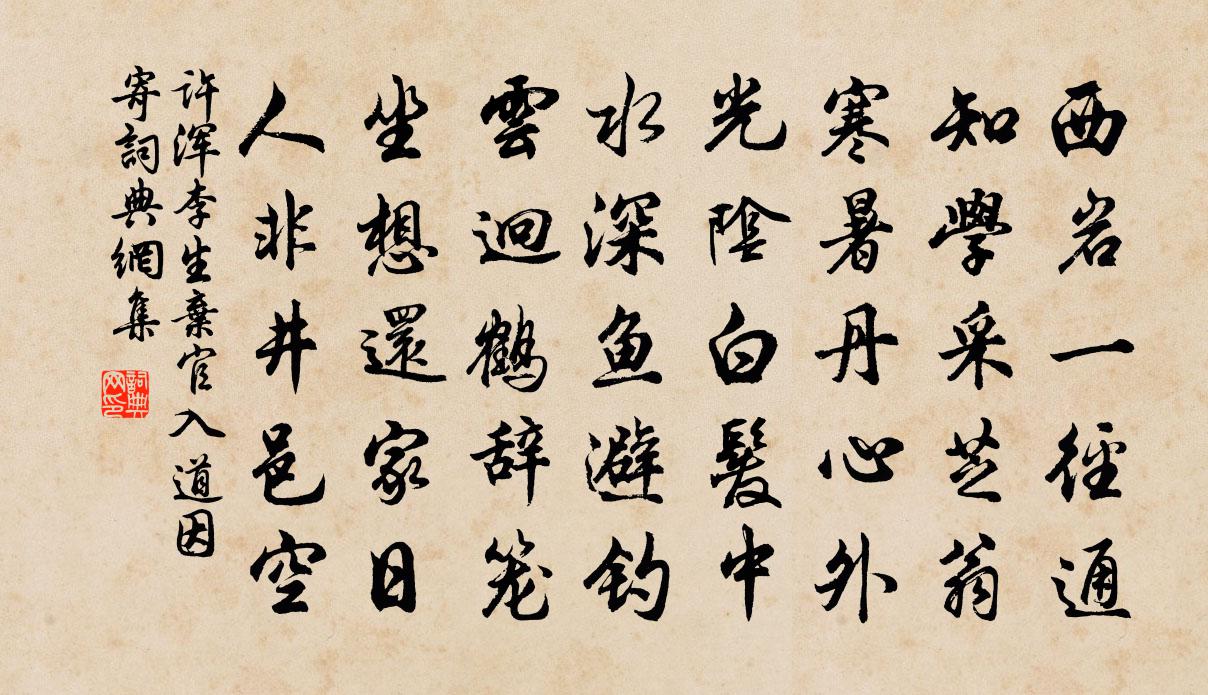 西岩一径通
知學采芝翁
寒暑丹心外
光陰白髮中
水深鱼避钓
雲迥鹤辞笼
坐想還家日
人非井邑空
许浑李生棄官入道因
寄詞典網集
詞典
网印